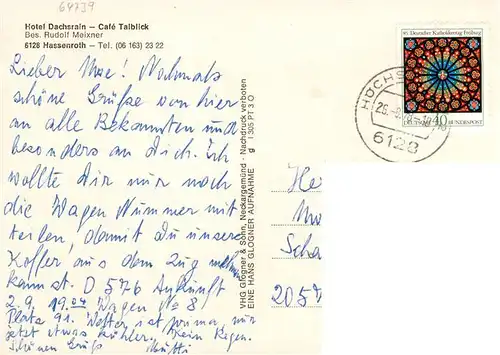 64739
Hotel Dachsrain – Café Talblick
Bes. Rudolf Meixner
6128 Hassenroth – Tel. (06 163) 23 22
Lieber Uwe! Nochmals
schöne Grüße von hier
an alle Bekannten und
besonders an Dich. Ich
wollte Dir nur noch
die Wagen Nummer mit
teilen, damit Du unsere
Koffer aus dem Zug
kann st. D 576 Ankunft
2.9. 19.04 Wagen No 8
Platz 91. Wetter ist prima, nur
jetzt etwas kühler. Kein Regen.
Schönen Gruß Mutti
VHG Glogner & Sohn, Neckargemünd · Nachdruck verboten
EINE HANS GLOGNER AUFNAHME g 1 305 P1 3 O
85. Deutscher Katholikentag Freiburg
40
DEUTSCHE BUNDESPOST
HÖCHS
6128
2057